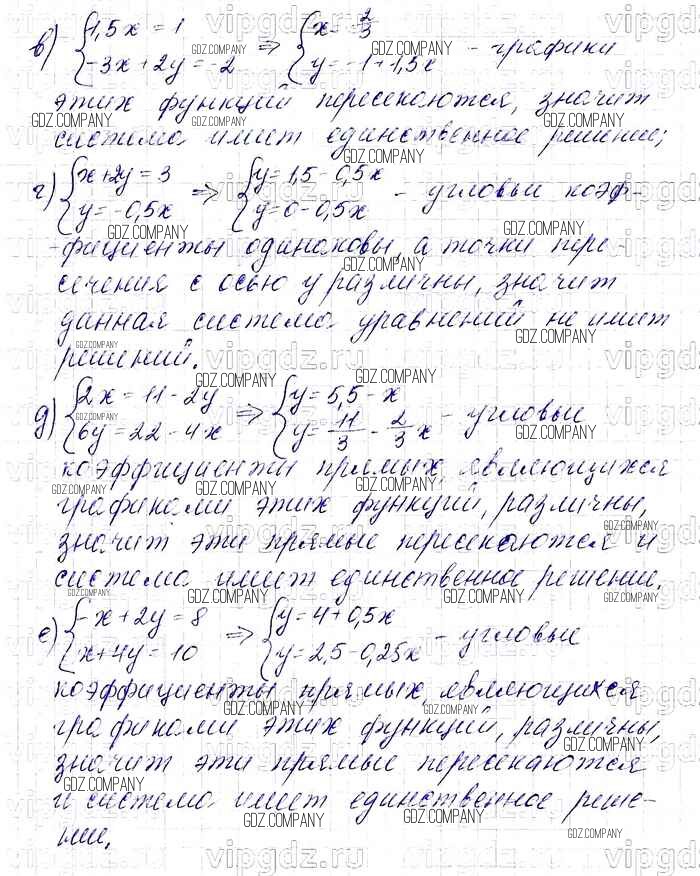 в) {1,5x = 1 ⇒ {x = 2/3
{-3x + 2y = -2 {y = -1 + 1,5x - графики
этих функций пересекаются, значит
система имеет единственное решение;
г) {x + 2y = 3 ⇒ {y = 1,5 - 0,5x - угловые коэф-
{y = -0,5x {y = 0 - 0,5x
-фициенты одинаковы, а точки пере-
сечения с осью y различны, значит
данная система уравнений не имеет
решений.
д) {2x = 11 - 2y ⇒ {y = 5,5 - x - угловые
{6y = 22 - 4x {y = 11/3 - 2/3 x
коэффициенты прямых, являющихся
графиками этих функций, различны,
значит эти прямые пересекаются и
система имеет единственное решение.
е) {-x + 2y = 8 ⇒ {y = 4 + 0,5x - угловые
{x + 4y = 10 {y = 2,5 - 0,25x
коэффициенты прямых, являющихся
графиками этих функций, различны,
значит эти прямые пересекаются
и система имеет единственное реше-
ние.
GDZ.COMPANY
vipgdz.ru